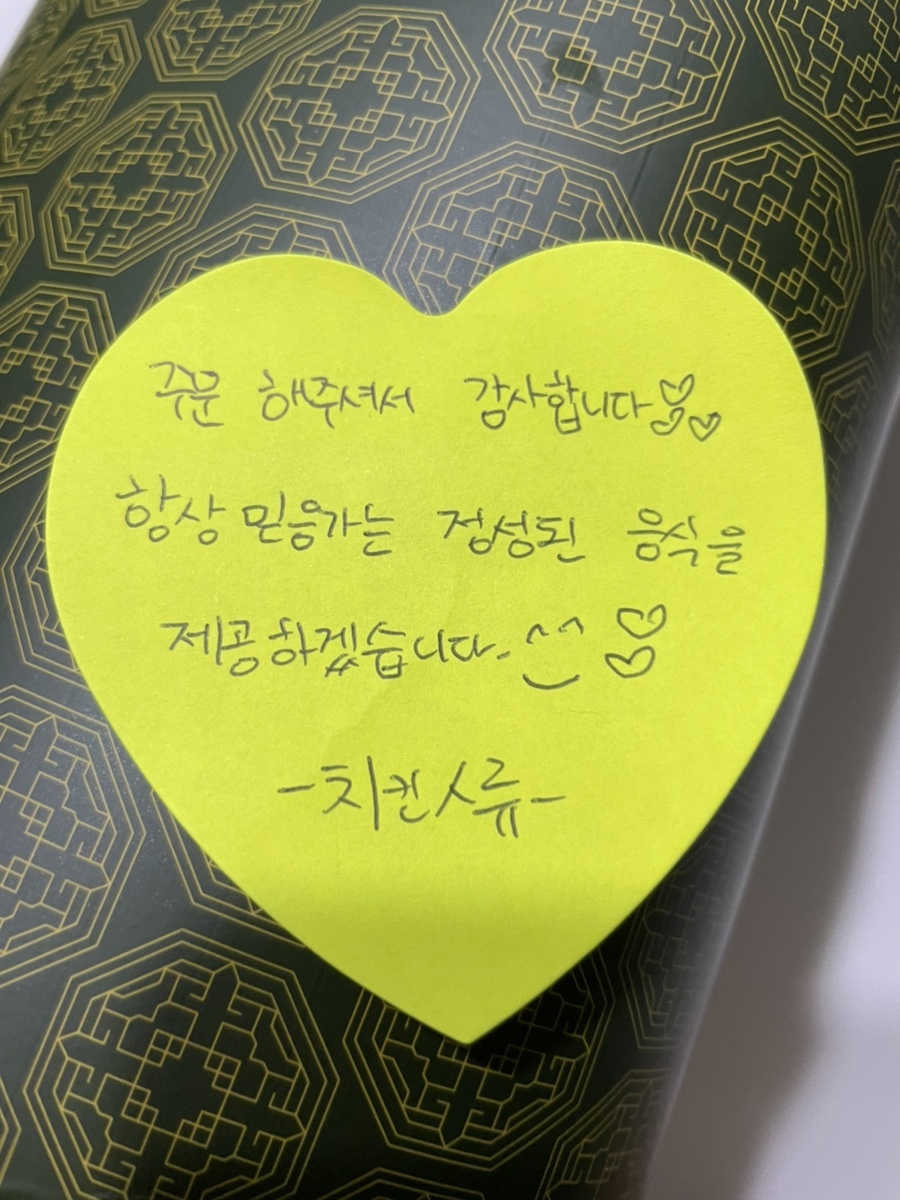 주문 해주셔서 감사합니다♡♡♡
항상 믿음가는 정성된 음식을
제공하겠습니다. ^^ ♡♡
-치킨스류-